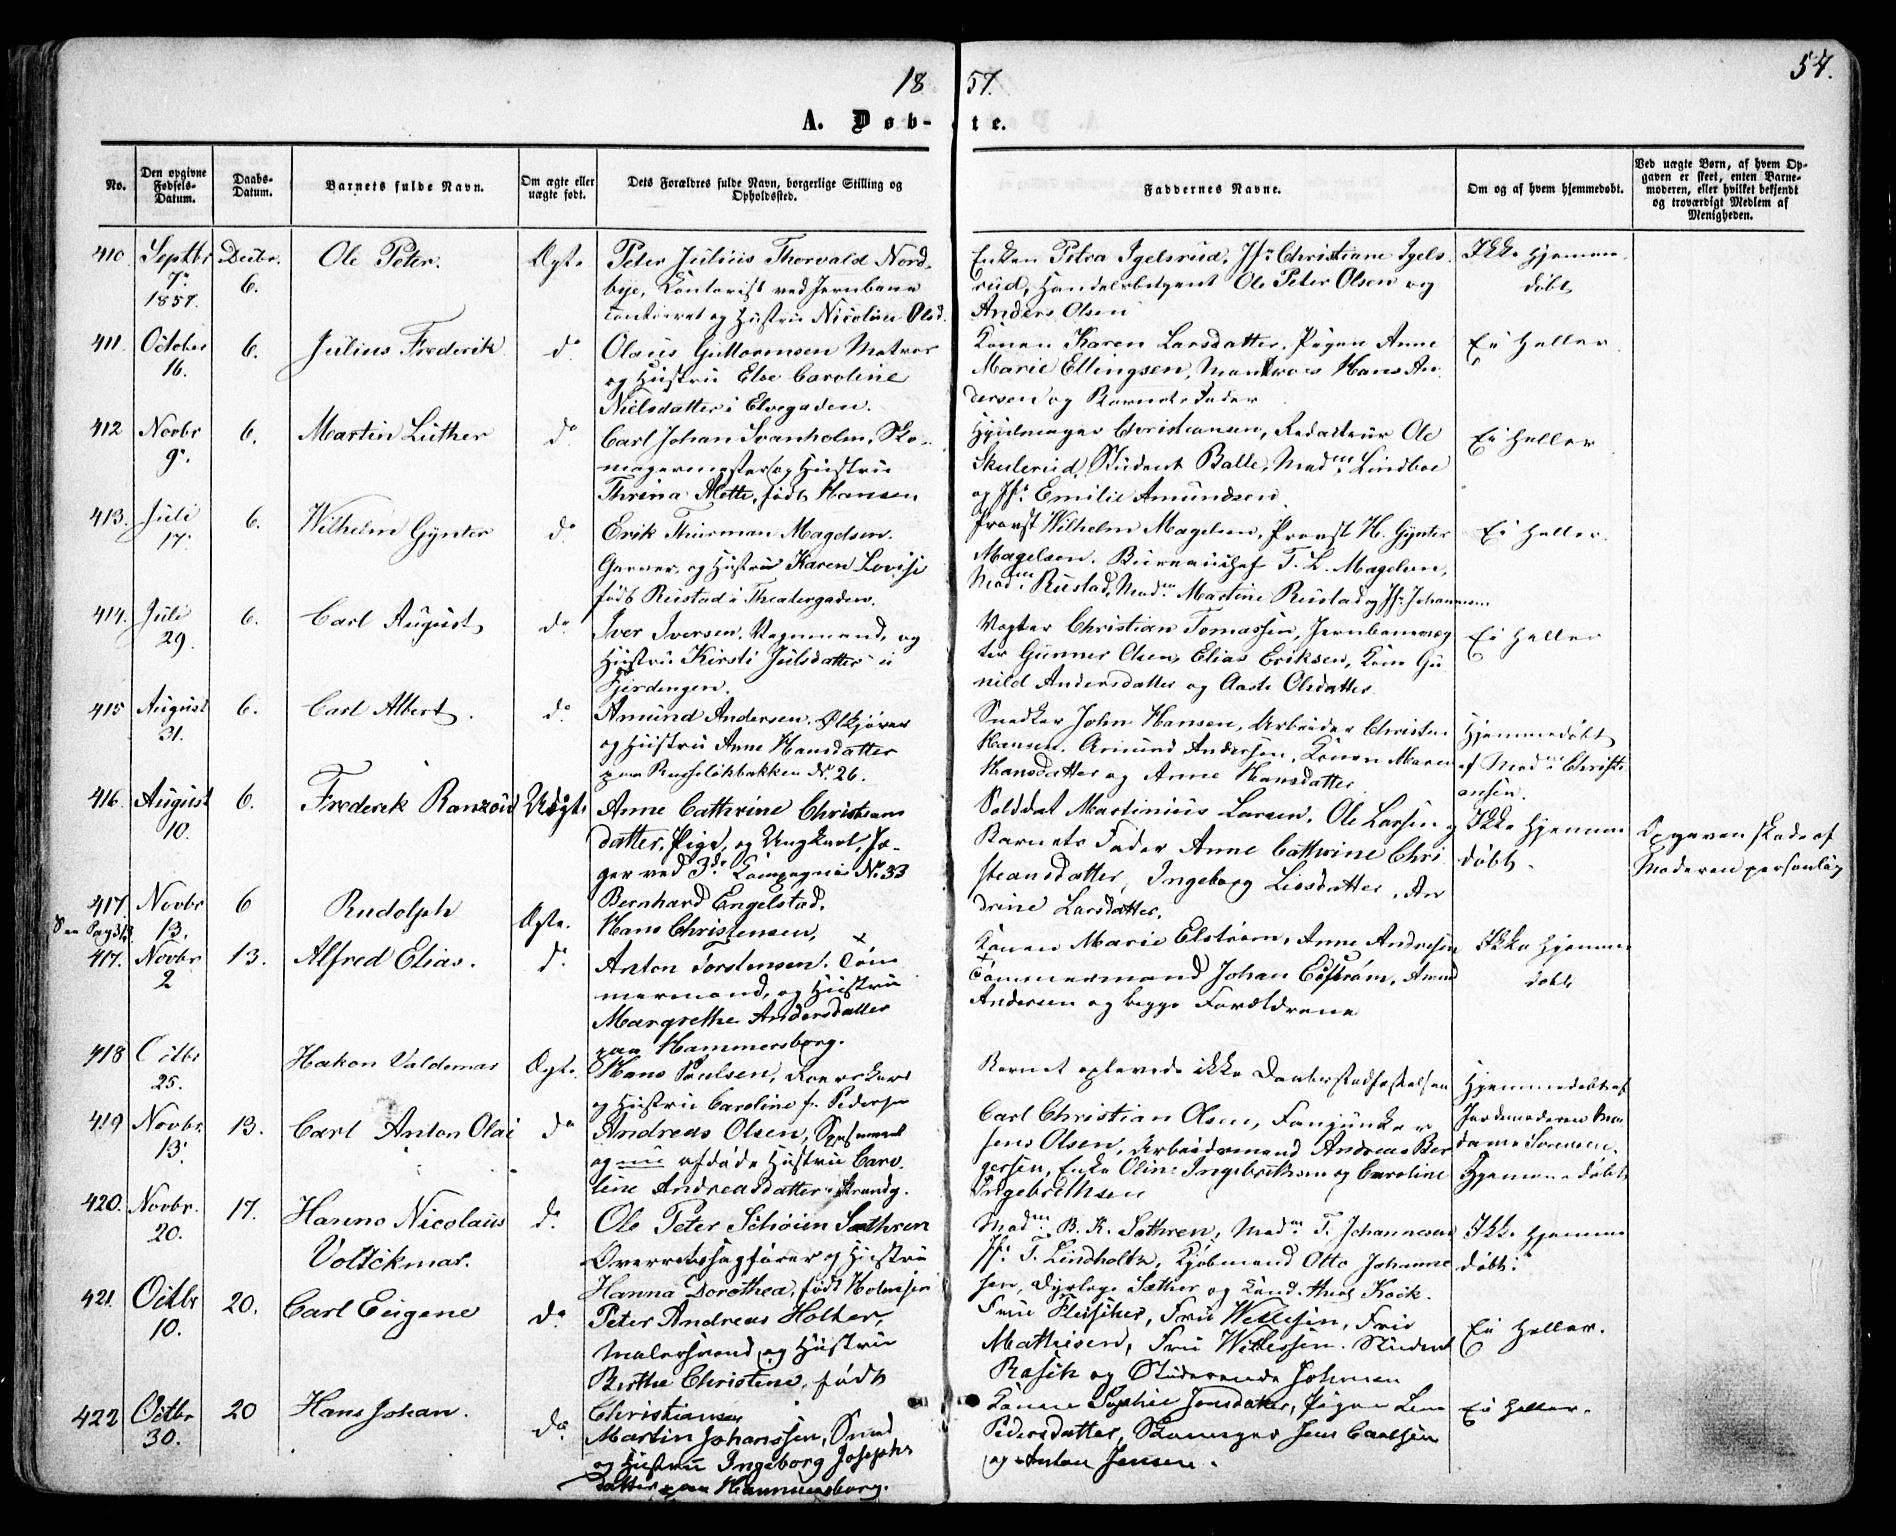 18 57. 57.
A. Døb- te.
No.
Den opgivne Fødsels-Datum.
Daabs-Datum.
Barnets fulde Navn.
Om ægte eller uægte født.
Dets Forældres fulde Navn, borgerlige Stilling og Opholdssted.
Faddernes Navne.
Om og af hvem hjemmedøbt.
Ved uægte Børn, af hvem Opgaven er skeet, enten Barnemoderen, eller hvilket bekjendt og troværdigt Medlem af Menigheden.
410 Septbr 7. 1857. Decbr. 6. Ole Peter. Ægte
Peter Julius Thorvald Nord-
bye, Contorist ved Jernbane
contoret og Hustru Nicoline Olsd.
Enken Petra Igelsrud, Jfr Christiane Igels-
rud, Handelsbetjent Ole Peter Olsen og
Anders Olsen
Ikke hjemme
døbt
411. October 16. 6. Julius Frederik do
Olaus Guttormsen Matros
og Hustru Else Caroline
Nielsdatter i Elvegaden.
Konen Karen Larsdatter, Pigen Anne
Marie Ellingsen, Matros Hans An-
dersen og Barnets Fader
Ei heller
412 Novbr 9. 6. Martin Luther do
Carl Johan Svanholm, Sko-
magermester og Hustru
Thrina Mette, født Hansen
Hjulmager Christiansen, Redacteur Ole
Skulerud, Student Balle, Madm Lindboe
og Jfr Emilie Amundsen
Ei heller
413. Juli 17. 6. Wilhelm Gynter do
Erik Thurman Magelsen.
Garver, og Hustru Karen Lovise
født Rustad i Theatergaden.
Provst Wilhelm Magelsen, Provst H. Gynter
Magelsen. Bureauchef T. L. Magelsen,
Madm Rustad, Madm Martine Rustad og Jfr Johannesen
Ei heller.
414. Juli 29. 6. Carl August do
Iver Iversen, Vognmand, og
Hustru Kirsti Julsdatter i
Fjerdingen.
Vogter Christian Tomassen, Jernbanevog-
ter Gunner Olsen, Elias Eriksen, Kone Gu-
nild Andersdatter og Aaste Olsdatter.
Ei heller
415 August 31. 6. Carl Albert. do
Amund Andersen. Ølkjører
og Hustru Anne Hansdatter
paa Russeløkbakken No. 26.
Snedker John Hansen, Arbeider Christen
Hansen. Amund Andersen, Konen Maren
Hansdatter og Anne Hansdatter
Hjemmedøbt
af Madm Christi-
ansen.
416. August 10. 6. Frederik Ranzou Uægte
Anne Cathrine Christians
datter, Pige, og Ungkarl, Jæ-
ger ved 3de Compagnie No 33
Bernhard Engelstad.
Soldat Martinius Larsen, Ole Larsen og
Barnets Fader Anne Cathrine Chri-
stiansdatter, Ingeborg Lissdatter, An-
drine Larsdatter.
Ikke hjemme
døbt.
Opgaven skede af
Moderen personlig
417. Novbr 13. 6 Rudolph Ægte. Hans Christensen,
417. Novbr 2 13. Alfred Elias. do
Anton Torstensen. Tøm
mermand, og Hustru
Margrethe Andersdatter
paa Hammersborg.
Konen Marie Elstrøm, Anne Andresen
Tømmermand Johan Elstrøm, Amund
Andersen og begge Forældrene
Ikke hjemme
døbt
418 Octbr 25. Hakon Valdemar Ægte.
Hans Poulsen,
og Hustru Caroline f. Pedersen
Barnet oplevede ikke Daabsstadfæstelsen
Hjemmedøbt af
Jordemoderen Ma-
dame Sørensen.
419 Novbr. 13. 13. Carl Anton Olai do
Andreas Olsen,
og nu afdøde Hustru Caro-
line Andreasdatter i Strandg.
Carl Christian Olsen, Fanejunker
Jens Olsen, Arbeidsmand Andreas Ber-
gersen, Enke Oline Ingebrektsen og Caroline
Ingebrethsen
Hjemmedøbt
420. Novbr. 20. 17. Hanno Nicolaus Voltckmar. do
Ole Peter Schøien Sathren
Overretssagfører og Hustru
Hanna Dorothea, født Holmsen
Madm B. K. Sathren, Madm T. Johannesen
Jfr T. Lindholtz, Kjøbmand Otto Johanne
sen, Dyrlæge Sather og Cand. theol Koik.
Ikke hjemme
døbt.
421. Octbr 10. 20. Carl Eugene do
Peter Andreas Holter,
Malersvend og Hustru
Berthe Christine, født
Christiansen
Fru Fleischer, Fru Willesen, Fru
Mathisen, Fru Willessen. Student
Rasch og Studerende Johnsen
Ei heller.
422 Octbr 30. 20 Hans Johan. do
Martin Johanssen, Smed
og Hustru Ingeborg Josephs
datter paa Hammersborg.
Konen Sophie Jonsdatter, Pigen Line
Pedersdatter, Skomager Jens Carlsen
og Anton Jensen.
Ei heller.